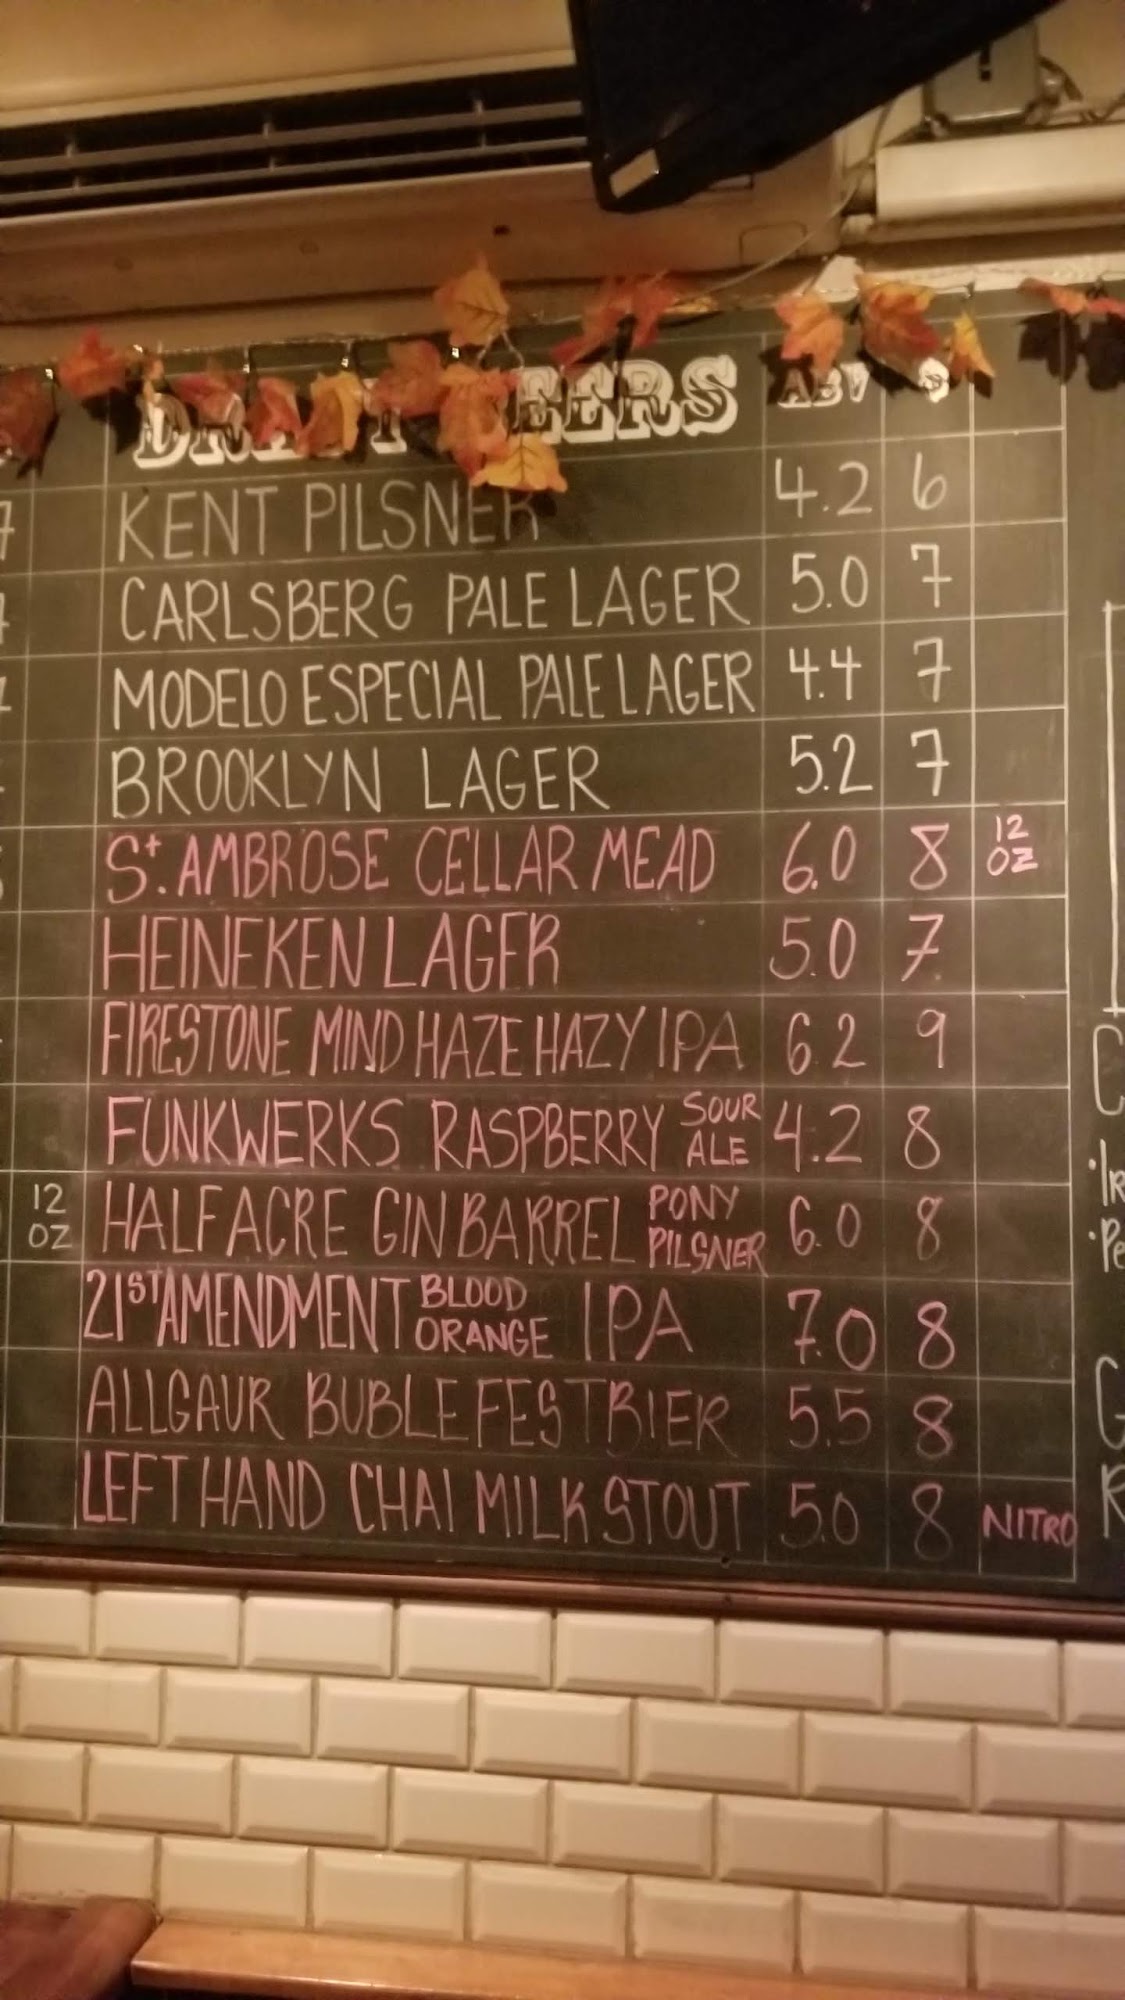 DRAFT BEERS ABV $
KENT PILSNER 4.2 6
CARLSBERG PALE LAGER 5.0 7
MODELO ESPECIAL PALE LAGER 4.4 7
BROOKLYN LAGER 5.2 7
St. AMBROSE CELLAR MEAD 6.0 8 12 OZ
HEINEKEN LAGER 5.0 7
FIRESTONE MIND HAZE HAZY IPA 6.2 9
FUNKWERKS RASPBERRY SOUR ALE 4.2 8
12 OZ HALF ACRE GIN BARREL PONY PILSNER 6.0 8
21ST AMENDMENT BLOOD ORANGE IPA 7.0 8
ALLGAUR BUBLE FESTBIER 5.5 8
LEFT HAND CHAI MILK STOUT 5.0 8 NITRO